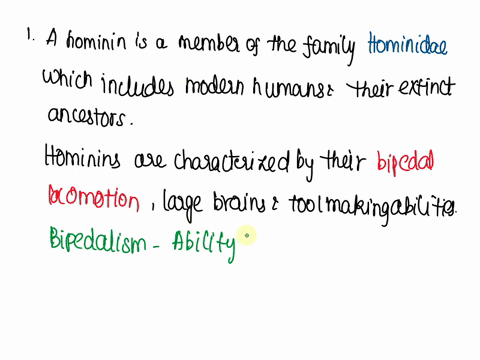 1. A hominin is a member of the family Hominidae
which includes modern humans & their extinct
ancestors.
Hominins are characterized by their bipedal
locomotion, large brains & toolmaking abilities.
Bipedalism - Ability